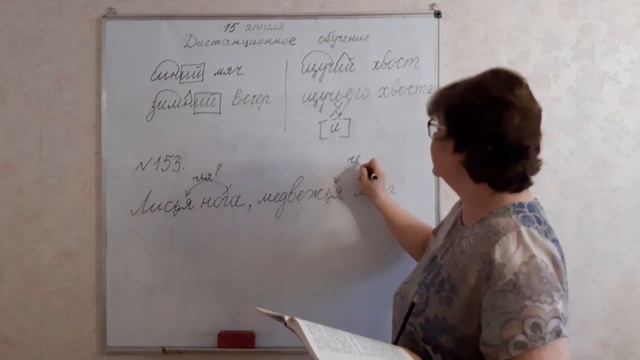 15 апреля
Дистанционное обучение
синий мяч
зимний вечер
щучий хвост
щучьего хвоста
[й']
№153.
чья?
Лисья нога, медвежья